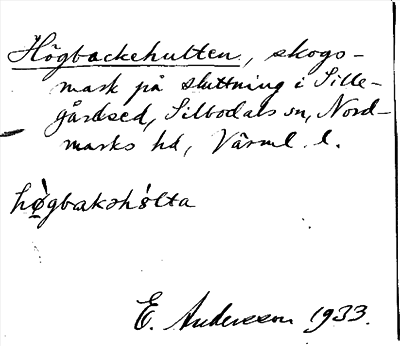 Högbackehulten, skogs-
mark på sluttning i Sille-
gårdsed, Silbodals sn, Nord-
marks hd, Värml. l.
hø̀gbakəhól̀ta
E. Andersson 1933.